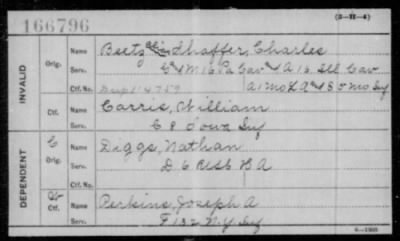 166796
(3-H-4)
INVALID
Orig.
Name Beetz Charles
Serv. M 16 Pa Cav A 12 Ill Cav
Ctf. No. A 1 Mo L A 8 Mo Inf
Ctf.
Name Carris, William
Serv. C 8 Iowa Inf
DEPENDENT
C
Orig.
Name Diggs, Nathan
Serv. D 6 USC H A
Ctf. No.
Ctf.
Name Perkins, Joseph A
Serv. F 132 N.Y. Inf